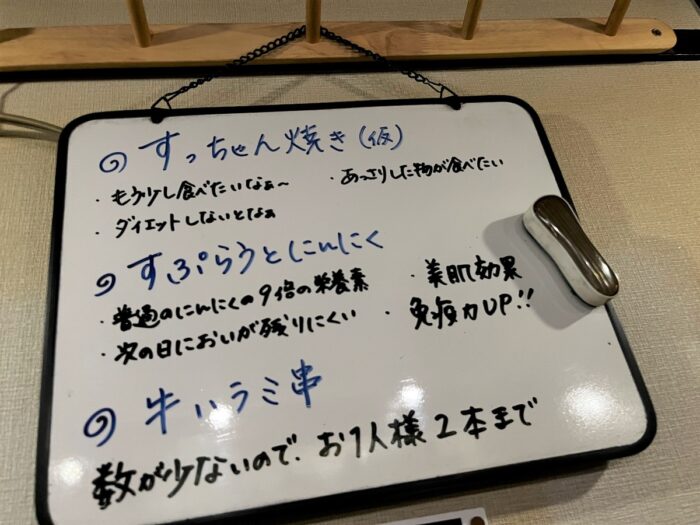 すっちゃん焼き(仮)
・もう少し食べたいなぁ〜
・あっさりした物が食べたい
・ダイエットしないとなぁ
すぷらうとにんにく
・普通のにんにくの9倍の栄養素
・美肌効果
・次の日においが残りにくい
・免疫力UP!!
牛ハラミ串
数が少ないので、お1人様2本まで